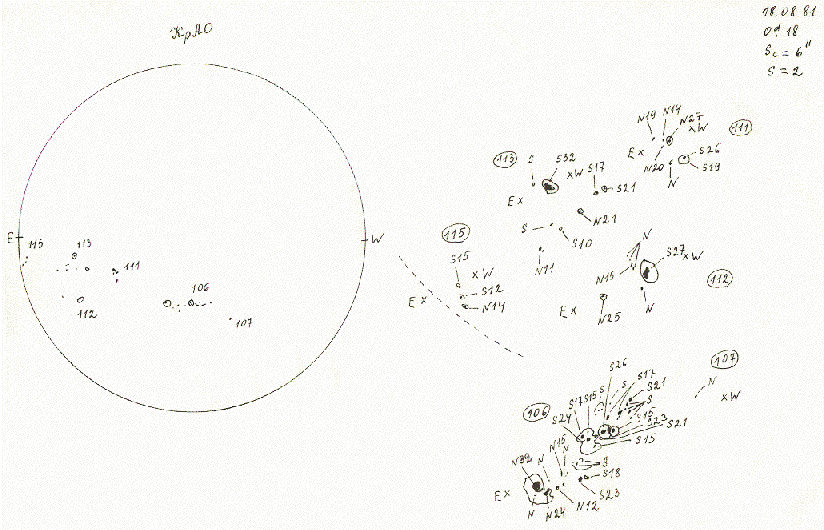 КрАО
18.08.81
S = 2
E
W
115
113
111
106
112
107
N19 N14
N27
xW
111
Ex
S26
N20
S19
N
113
S32
xW
S17
Ex
S21
N21
S
S10
N11
115
S15
xW
S12
Ex
N14
N
S27
xW
N15
112
Ex
N25
N
107
N
xW
S26
S
S
S21
S
106
S17
S15
S24
S23
S21
S13
N
N
S
S18
S23
Ex
N
N24
N12